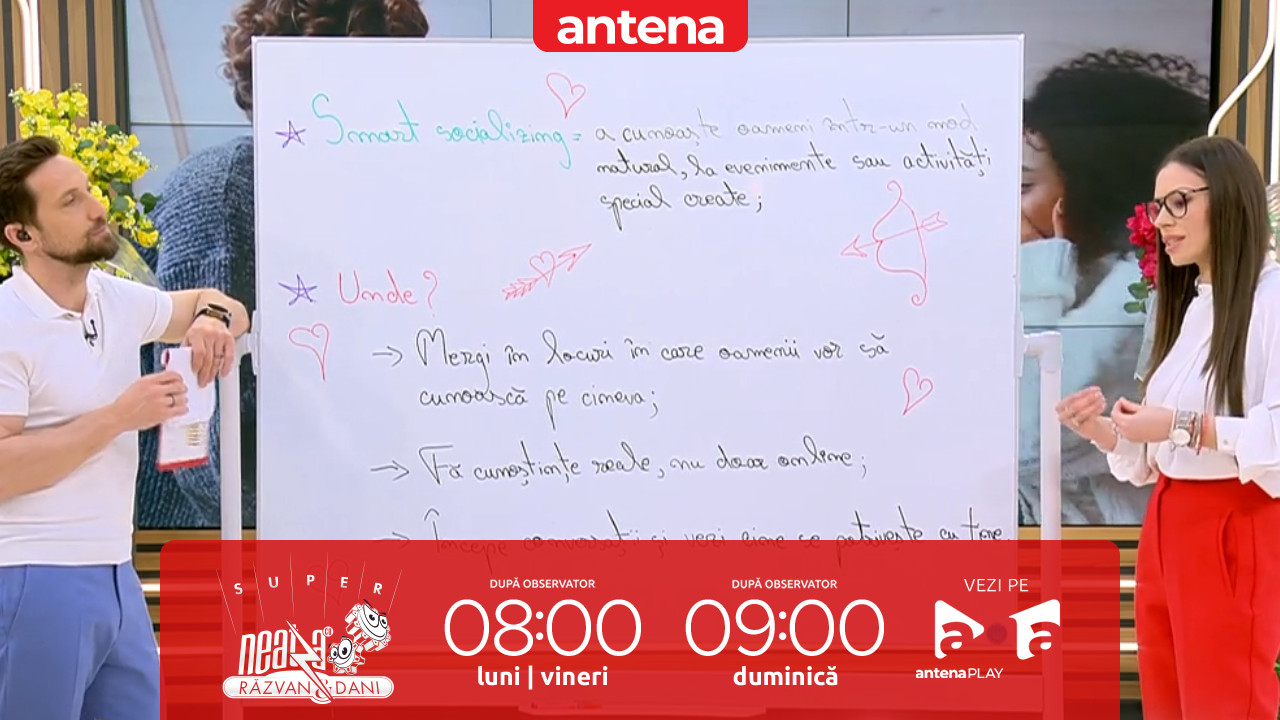 antena
Smart socializing = a cunoaște oameni într-un mod
natural, la evenimente sau activități
special create;
Unde?
→ Mergi în locuri în care oamenii vor să
cunoască pe cineva;
→ Fă cunoștințe reale, nu doar online;
→ Începe conversații și vezi cine se potrivește cu tine
SUPER
neatza
RĂZVAN & DANI
DUPĂ OBSERVATOR
08:00
luni | vineri
DUPĂ OBSERVATOR
09:00
duminică
VEZI PE
a a
antenaPLAY